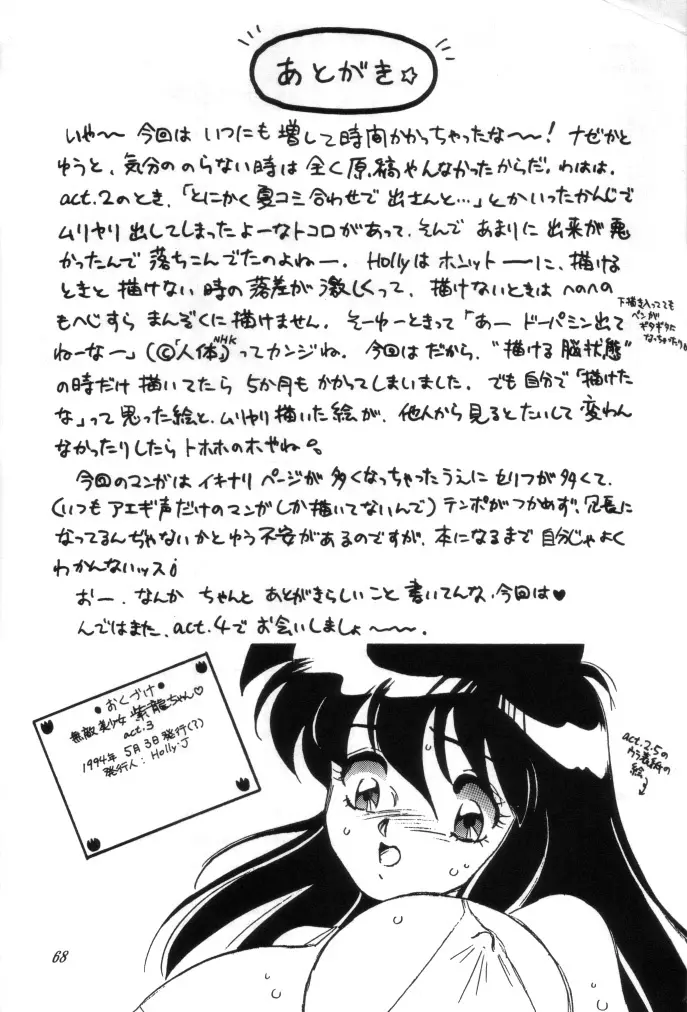 あとがき☆
いや〜〜 今回は いつにも 増して時間かかっちゃったな〜〜! ナゼかと
ゆうと、気分の のらない時は 全く原稿やんなかったからだ。わはは。
act.2のとき、「とにかく夏コミ合わせで 出さんと…」とかいったかんじで
ムリヤリ 出してしまったよーなトコロがあって、そんで あまりに 出来が悪
かったんで 落ちこんでたのよねー。Hollyは ホニットーーに、描ける
ときと 描けない 時の落差が 激しくって、描けないときは へのへの
もへじすら まんぞくに描けません。そーゆーときって「あー ドーパミン出て
ねーなー」(©「人体」NHK)ってカンジね。今回は だから、"描ける脳状態"
の時だけ 描いてたら 5か月も かかってしまいました。でも自分で「描けた
な」って思った絵と、ムリヤリ描いた絵が、他人から見るとたいして 変わん
なかったりしたら トホホのホやね。
下描き入ってても
ペンが
ギタギタに
なっちゃったり
今回のマンガは イキナリ ページが 多くなっちゃったうえに セリフが多くて、
(いつも アエギ声だけのマンガしか描いてないんで)テンポがつかめず、冗長に
なってるんぢゃないかとゆう不安があるのですが、本になるまで 自分じゃよく
わかんないッス
おー、なんか ちゃんと あとがきらしいこと 書いてんな、今回は♥
んではまた、act.4で お会いしましょ〜〜〜。
●おくづけ●
無敵美少女 紫龍ちゃん♡
act.3
1994年 5月3日発行(?)
発行人:Holly.J
act.2.5の
ウラ表紙の
絵
68